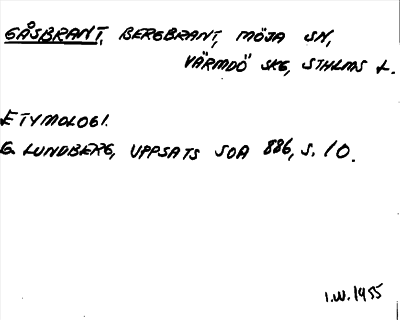 GÅSBRANT, BERGBRANT, MÖJA SN,
VÄRMDÖ SKG, STHLMS L.
ETYMOLOGI.
G LUNDBERG, UPPSATS SOA 886, S. 10.
I.W. 1955